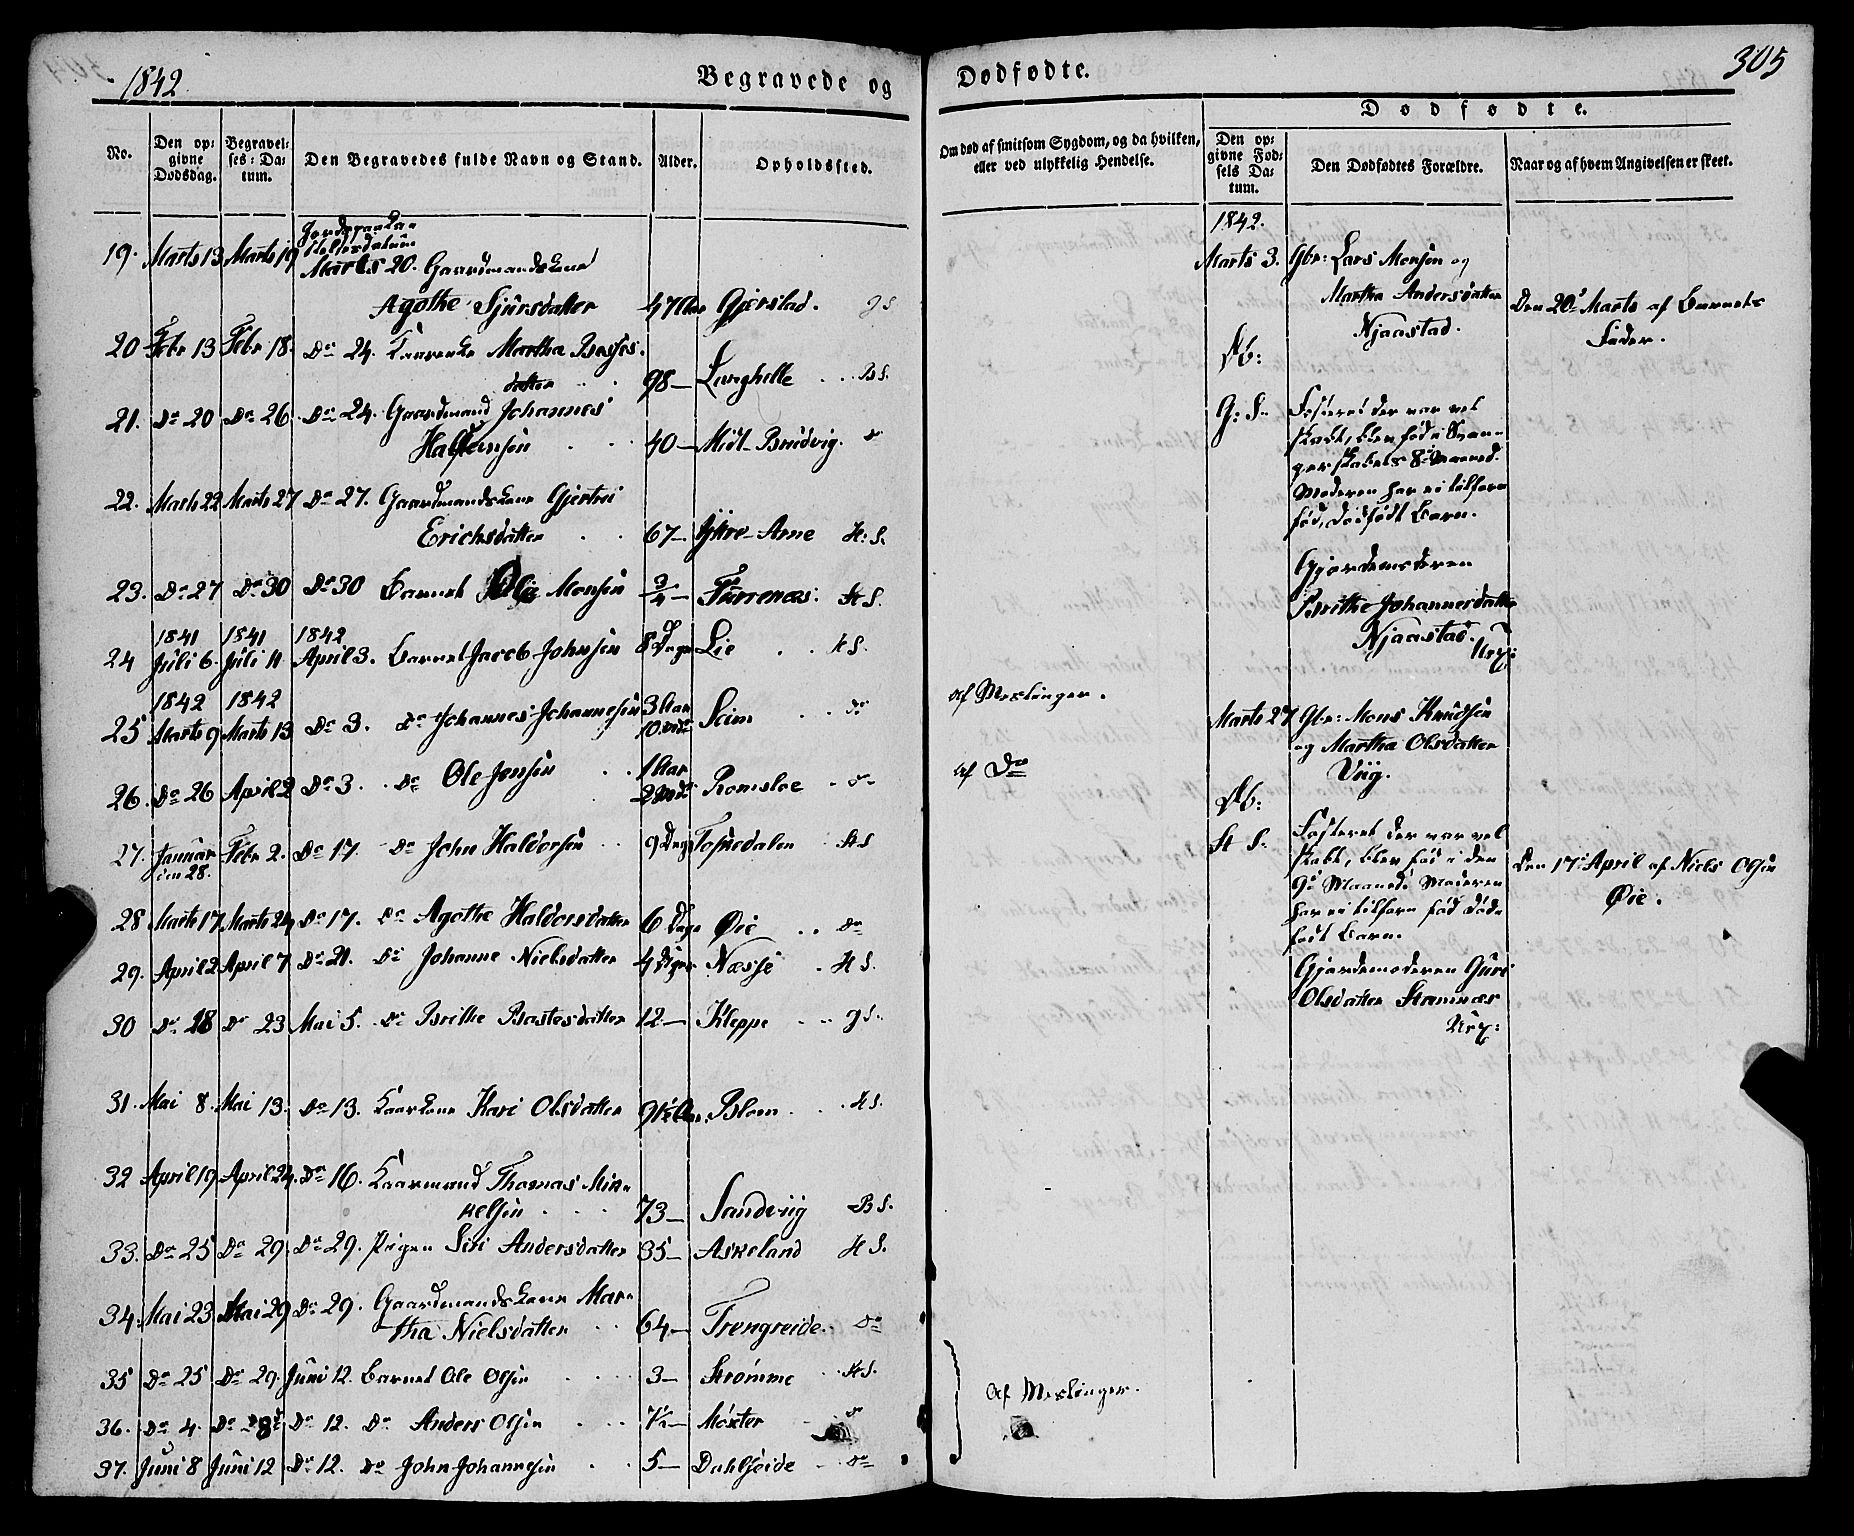 1842.
Begravede og
No.
Den op=
givne
Dødsdag.
Begravel=
ses=Da=
tum.
Den Begravedes fulde Navn og Stand.
Alder.
Opholdssted.
Jordpaaka=
stelsesdatum
19. Marts 13 Marts 19 Marts 20. Gaardmandskone
Agothe Sjursdatter 47 Aar Gjerstad. G S
20 Febr 13 Febr 18. Do 24. Kaarenke Martha
datter 98 — Langhelle B S.
21. Do 20 Do 26 Do 24. Gaardmand Johannes
Halsteinsen 40 — Midt-Brudvig. Do
22. Marts 22 Marts 27 Do 27. Gaardmandskone Gjertrui
Erichsdatter 67 — Ytre-Arne H. S.
23. Do 27 Do 30 Do 30 Barnet Ole Monsen 3/4 — H S.
1841 1841 1842
24 Juli 6. Juli 11 April 3. Barnet Jacob Johnsen 8 Dage Lie H S.
1842 1842
25 Marts 9 Marts 13 Do 3. Do Johannes Johannesen 3 Aar
10 Md Seim Do
26. Do 26 April 2 Do 3. Do Ole Jensen 1 Aar
2 Md Romsloe Do
27. Januar
den 28. Febr 2. Do 17. Do John Haldorsen 9 Dage Tossedalen H S
28 Marts 17 Marts 24 Do 17. Do Agothe Haldorsdatter 6 Dage Øie Do
29. April 2 April 7 Do 21. Do Johanne Nielsdatter 4 Dage Næsse H S.
30 Do 18 Do 23 Mai 5. Do Brithe Bastesdatter 12. — Kleppe G S.
31. Mai 8. Mai 13. Do 13. Kaarkone Kari Olsdatter 91½ Aar. Blom H S.
32 April 19 April 24. Do 16. Kaarmand Thomas Mik=
kelsen 73 — Sandviig B S.
33. Do 25 Do 29. Do 29. Pigen Siri Andersdatter 35 — Askeland H S.
34. Mai 23 Mai 29 Do 29. Gaardmandskone Mar=
tha Nielsdatter 64 — Trengreide. Do
35 Do 25 Do 29. Juni 12. Barnet Ole Olsen 3 — Strømme H S.
36. Do 4. Do 8 Do 12. Do Anders Olsen ½ — Møster Do
37. Juni 8 Juni 12 Do 12. Do John Johannesen 5 — Dahlseide Do
305
Dødfødte.
Om død af smitsom Sygdom, og da hvilken,
eller ved ulykkelig Hendelse.
Dødfødte.
Den op=
givne Fød=
sels Da=
tum.
Den Dødfødtes Forældre.
Naar og af hvem Angivelsen er skeet.
af Meslinger.
af Do
Af Meslinger.
1842.
Marts 3. Gbr: Lars Monsen og
Martha Andersdatter
Njaastad.
Db:
G: S. Fosteret der var vel
skabt, blev fød i Svan=
gerskabets 8de Maaned.
Moderen har ei tilforn
fød, dødfødt Barn.
Gjordemoderen
Brithe Johannesdatter
Njaastad.
Den 20de Marts af Barnets
Fader.
Marts 27 Gbr: Mons Knudsen
og Martha Olsdatter
Viig.
Db:
H S. Fosteret der var vel
skabt, blev fød i den
9de Maaned. Moderen
har ei tilforn fød død=
født Barn.
Gjordemoderen Guri
Olsdatter Stamnæs
Den 17de April af Niels Olsen
Øie.